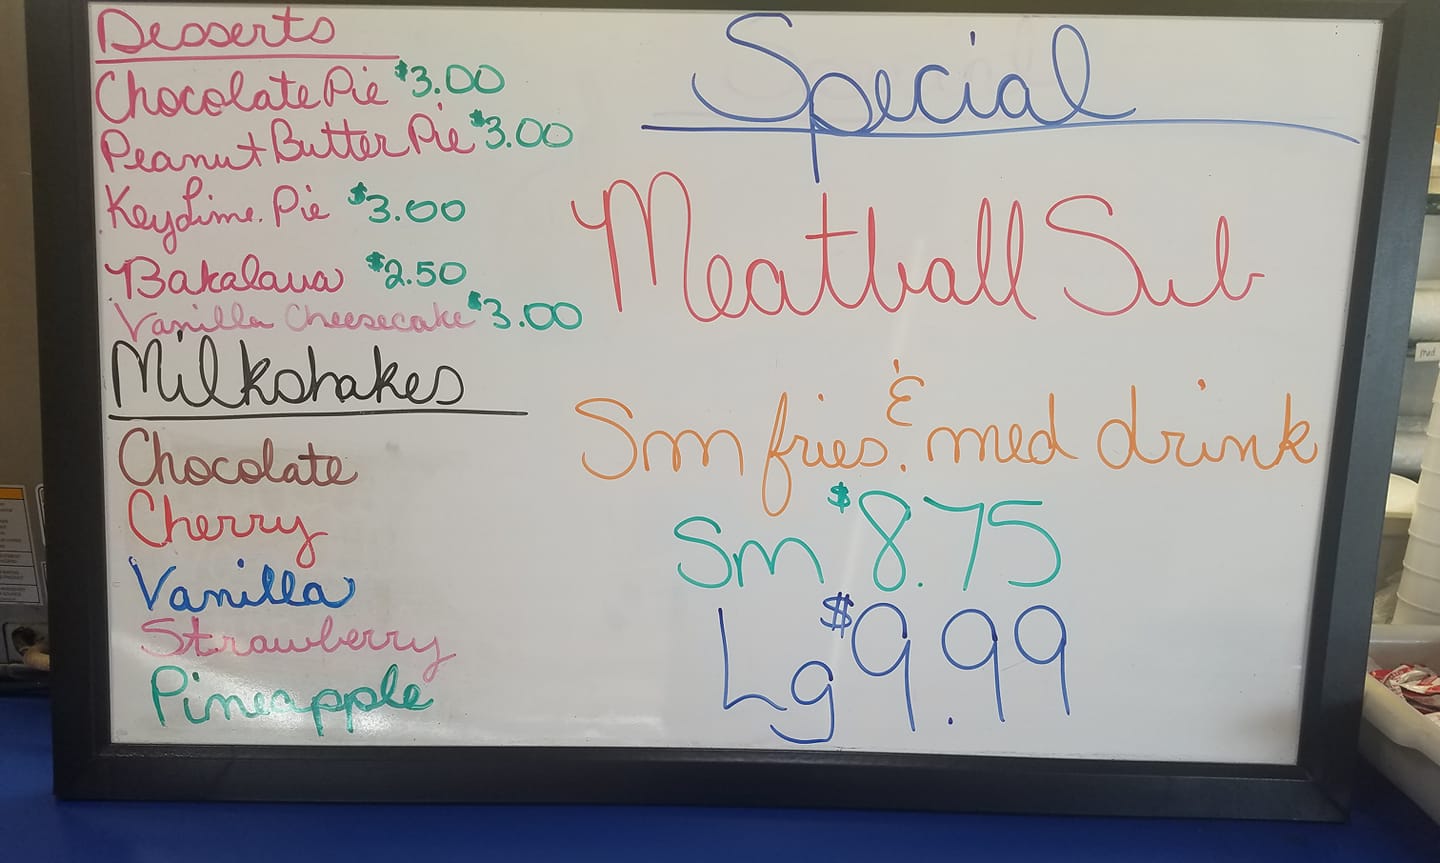 Desserts
Chocolate Pie $3.00
Peanut Butter Pie $3.00
Key Lime Pie $3.00
Bakalava $2.50
Vanilla Cheesecake $3.00
Milkshakes
Chocolate
Cherry
Vanilla
Strawberry
Pineapple
Special
Meatball Sub
Sm fries & med drink
Sm $8.75
Lg $9.99